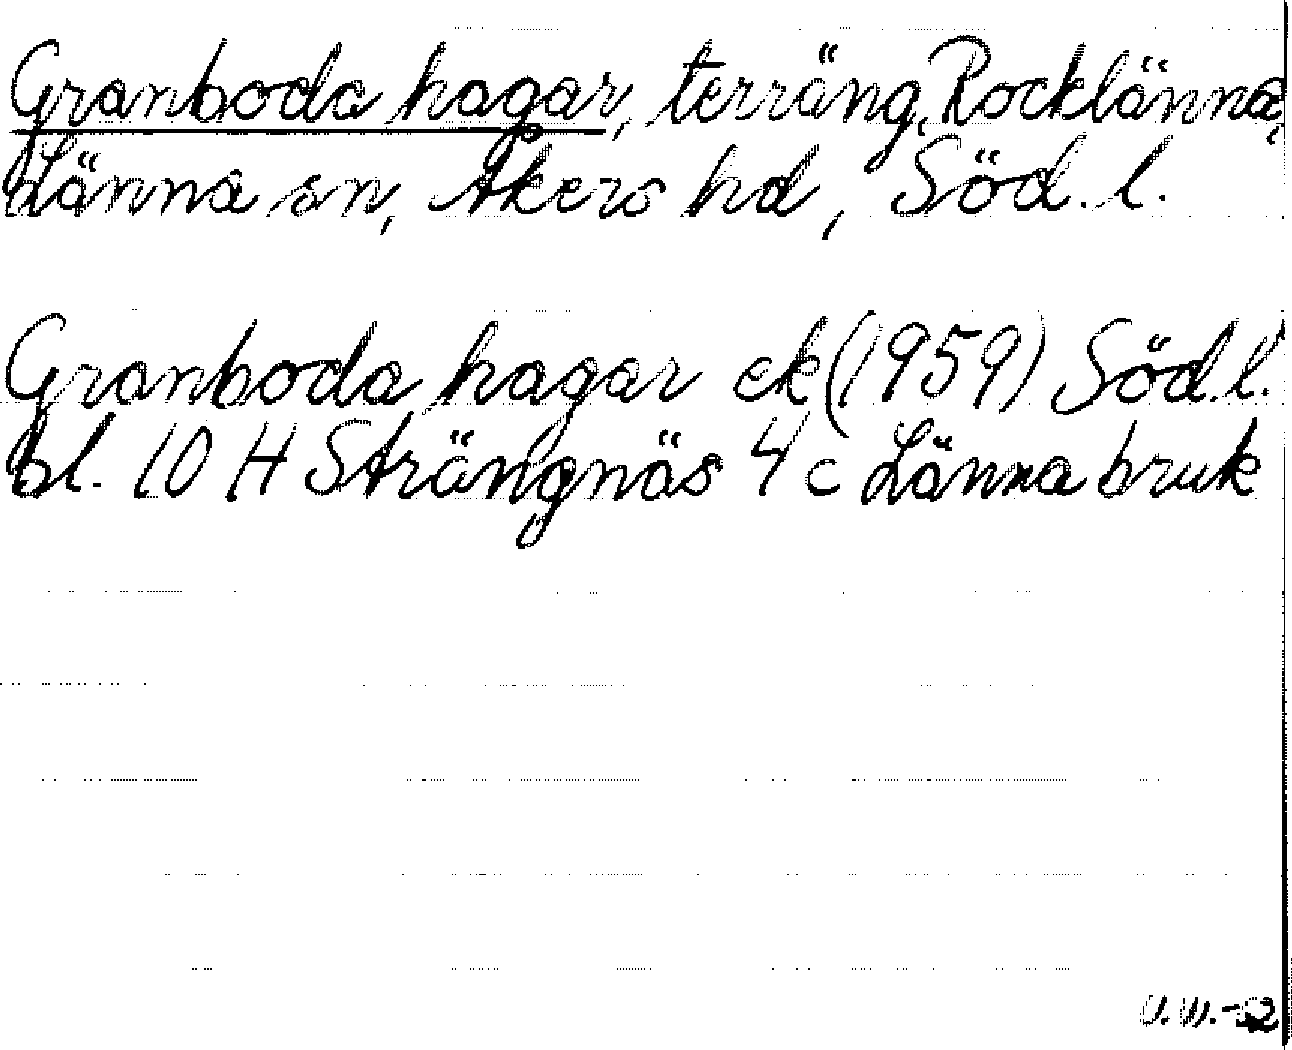 Granboda hagar, terräng, Rocklänna,
Länna sn, Åkers hd, Söd. l.
Granboda hagar ek (1959) Söd. l.
bl. 10 H Strängnäs 4 c Länna bruk